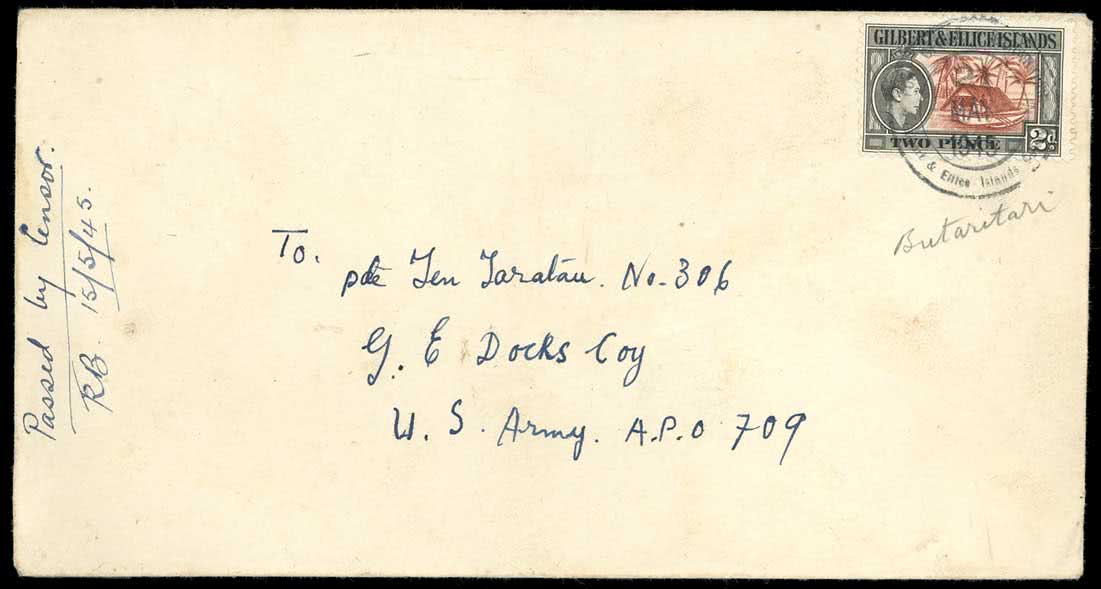 GILBERT & ELLICE ISLANDS
TWO PENCE
2d
MAY
1945
& Ellice Islands
Butaritari
Passed by Censor.
RB. 15/5/45.
To.
pde Ten Taratau. No. 306
G. E Docks Coy
U. S. Army. A.P.O 709